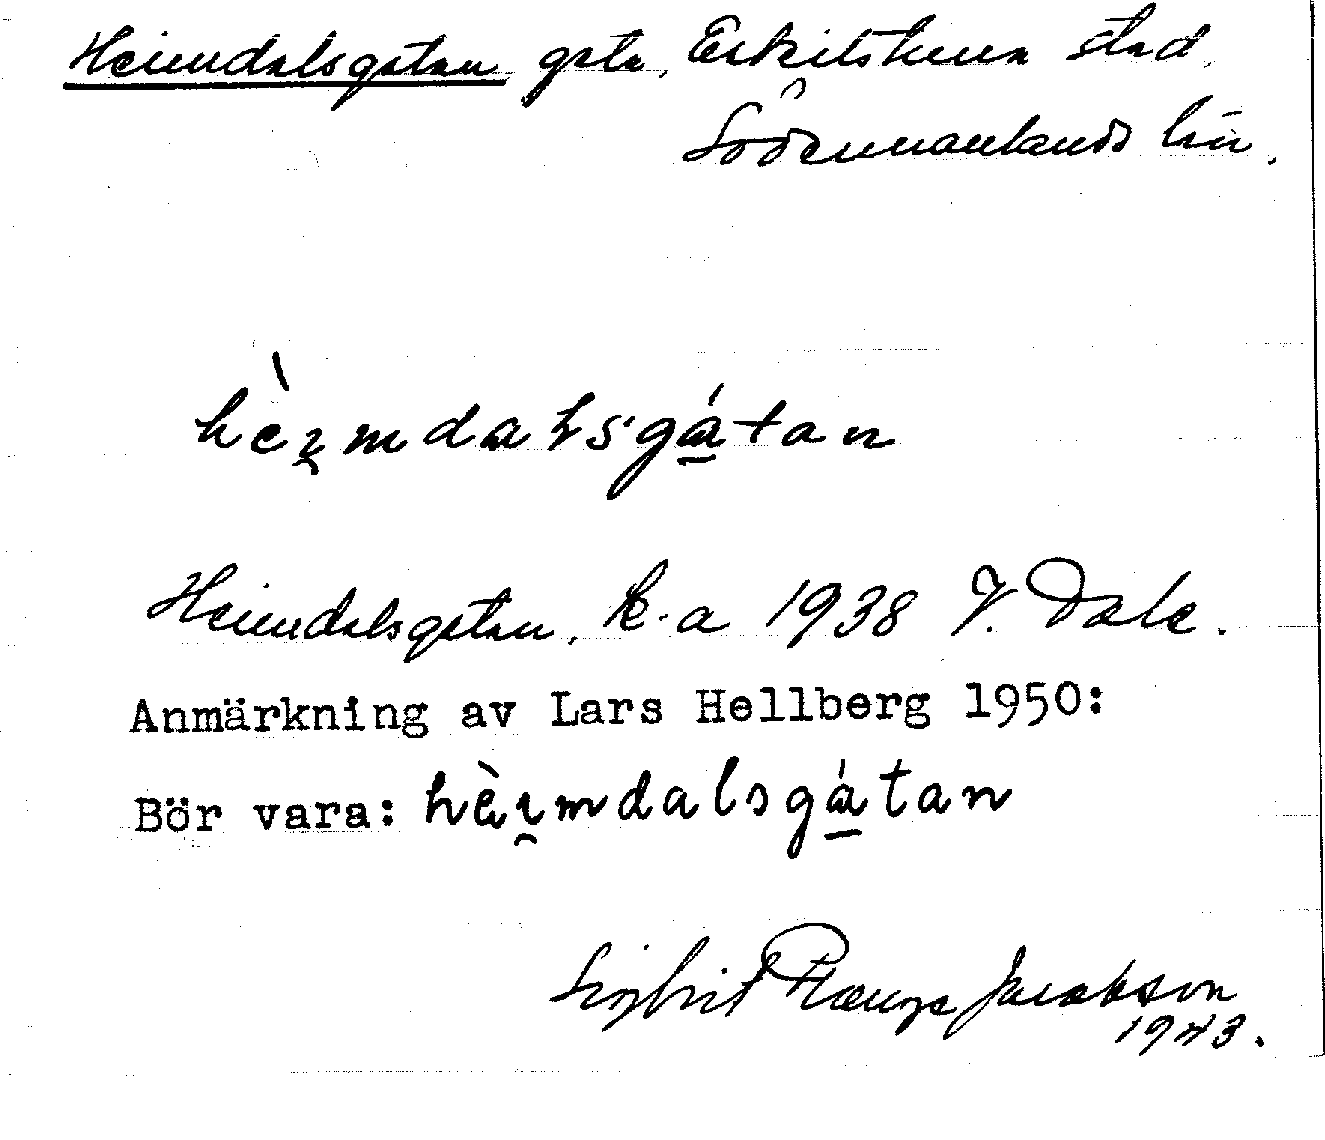 Heimdalsgatan gata, Eskilstuna stad,
Södermanlands län.
hèi̯mdalsgá̱tan
Heimdalsgatan. k.a 1938 V. Dale.
Anmärkning av Lars Hellberg 1950:
Bör vara: hèi̯mdalsgá̱tan
Sigbrit Jacobson
1943.